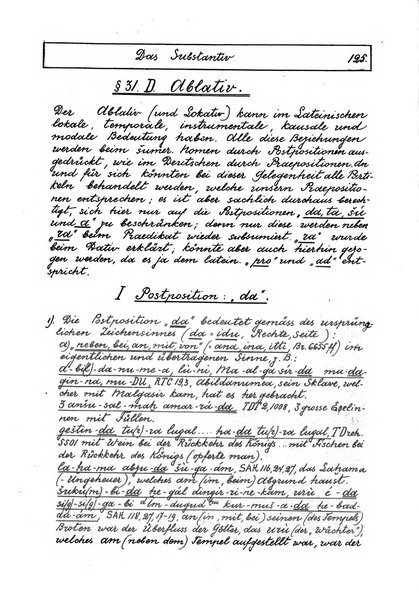 Das Substantiv 125.
§ 31. D. Ablativ.
Der Ablativ (und Lokativ) kann im Lateinischen
lokale, temporale, instrumentale, kausale und
modale Bedeutung haben. Alle diese Beziehungen
werden beim sumer. Nomen durch Postpositionen aus-
gedrückt, wie im Deutschen durch Praepositionen. An
und für sich könnten bei dieser Gelegenheit alle Parti-
keln behandelt werden, welche unsern Praepositio-
nen entsprechen; es ist aber sachlich durchaus berech-
tigt, sich hier nur auf die Postpositionen „da, ta, šú
und a" zu beschränken; denn nur diese werden neben
„ra" beim Praedikat wieder subsumiert. „ra" wurde
beim Dativ erklärt; könnte aber auch hierhin gezo-
gen werden, da es ja dem latein. „pro" und „ad" ent-
spricht.
I Postposition: „da".
1). Die Postposition „da" bedeutet gemäss des ursprüng-
lichen Zeichensinnes (da = idu, Rechte, Seite):
a) „neben, bei, an, mit, von" (= ana, ina, itti, Br. 6655 ff) im
eigentlichen und übertragenen Sinne, z. B.:
lú-ni, Ma-al-ga-sir-da mu-da-
gin-na, mu-DU, RTC 193, Abildanumea, sein Sklave, wel-
cher mit Malgasir kam, hat es hergebracht.
3 anšu-sal-maḫ amar-ru-da TDT 2, 1008, 3 grosse Eselin-
nen mit Füllen.
geštin-da tu(r)-ra lugal.... ḫa-da tu(r)-ra lugal, TDreh.
5501 mit Wein bei der Rückkehr des Königs... mit Fischen bei
der Rückkehr des Königs (opferte man).
la-ḫa-ma abzu-da šu-ga-ám, SAK 116, 24, 27, das Laḫama
(= Ungeheuer), welches am (im, beim) Abgrund haust.
šuku(m)-bi-da ḫe-gál dingir-ri-ne-kam, urú e-da
si(g)-si(g)-ga-bi im-dugud kur-muš-a-da ḫe-bad-
da-ám, SAK 118, 27, 17-19, an (in, mit, bei) seinen (des Tempels)
Broten war der Überfluss der Götter, das urú (der „Wächter"),
welches am (neben dem) Tempel aufgestellt war, war der